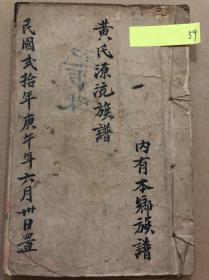 內有本鄉族譜
黃氏源流族譜
民國貳拾年庚午年六月卅日置
59